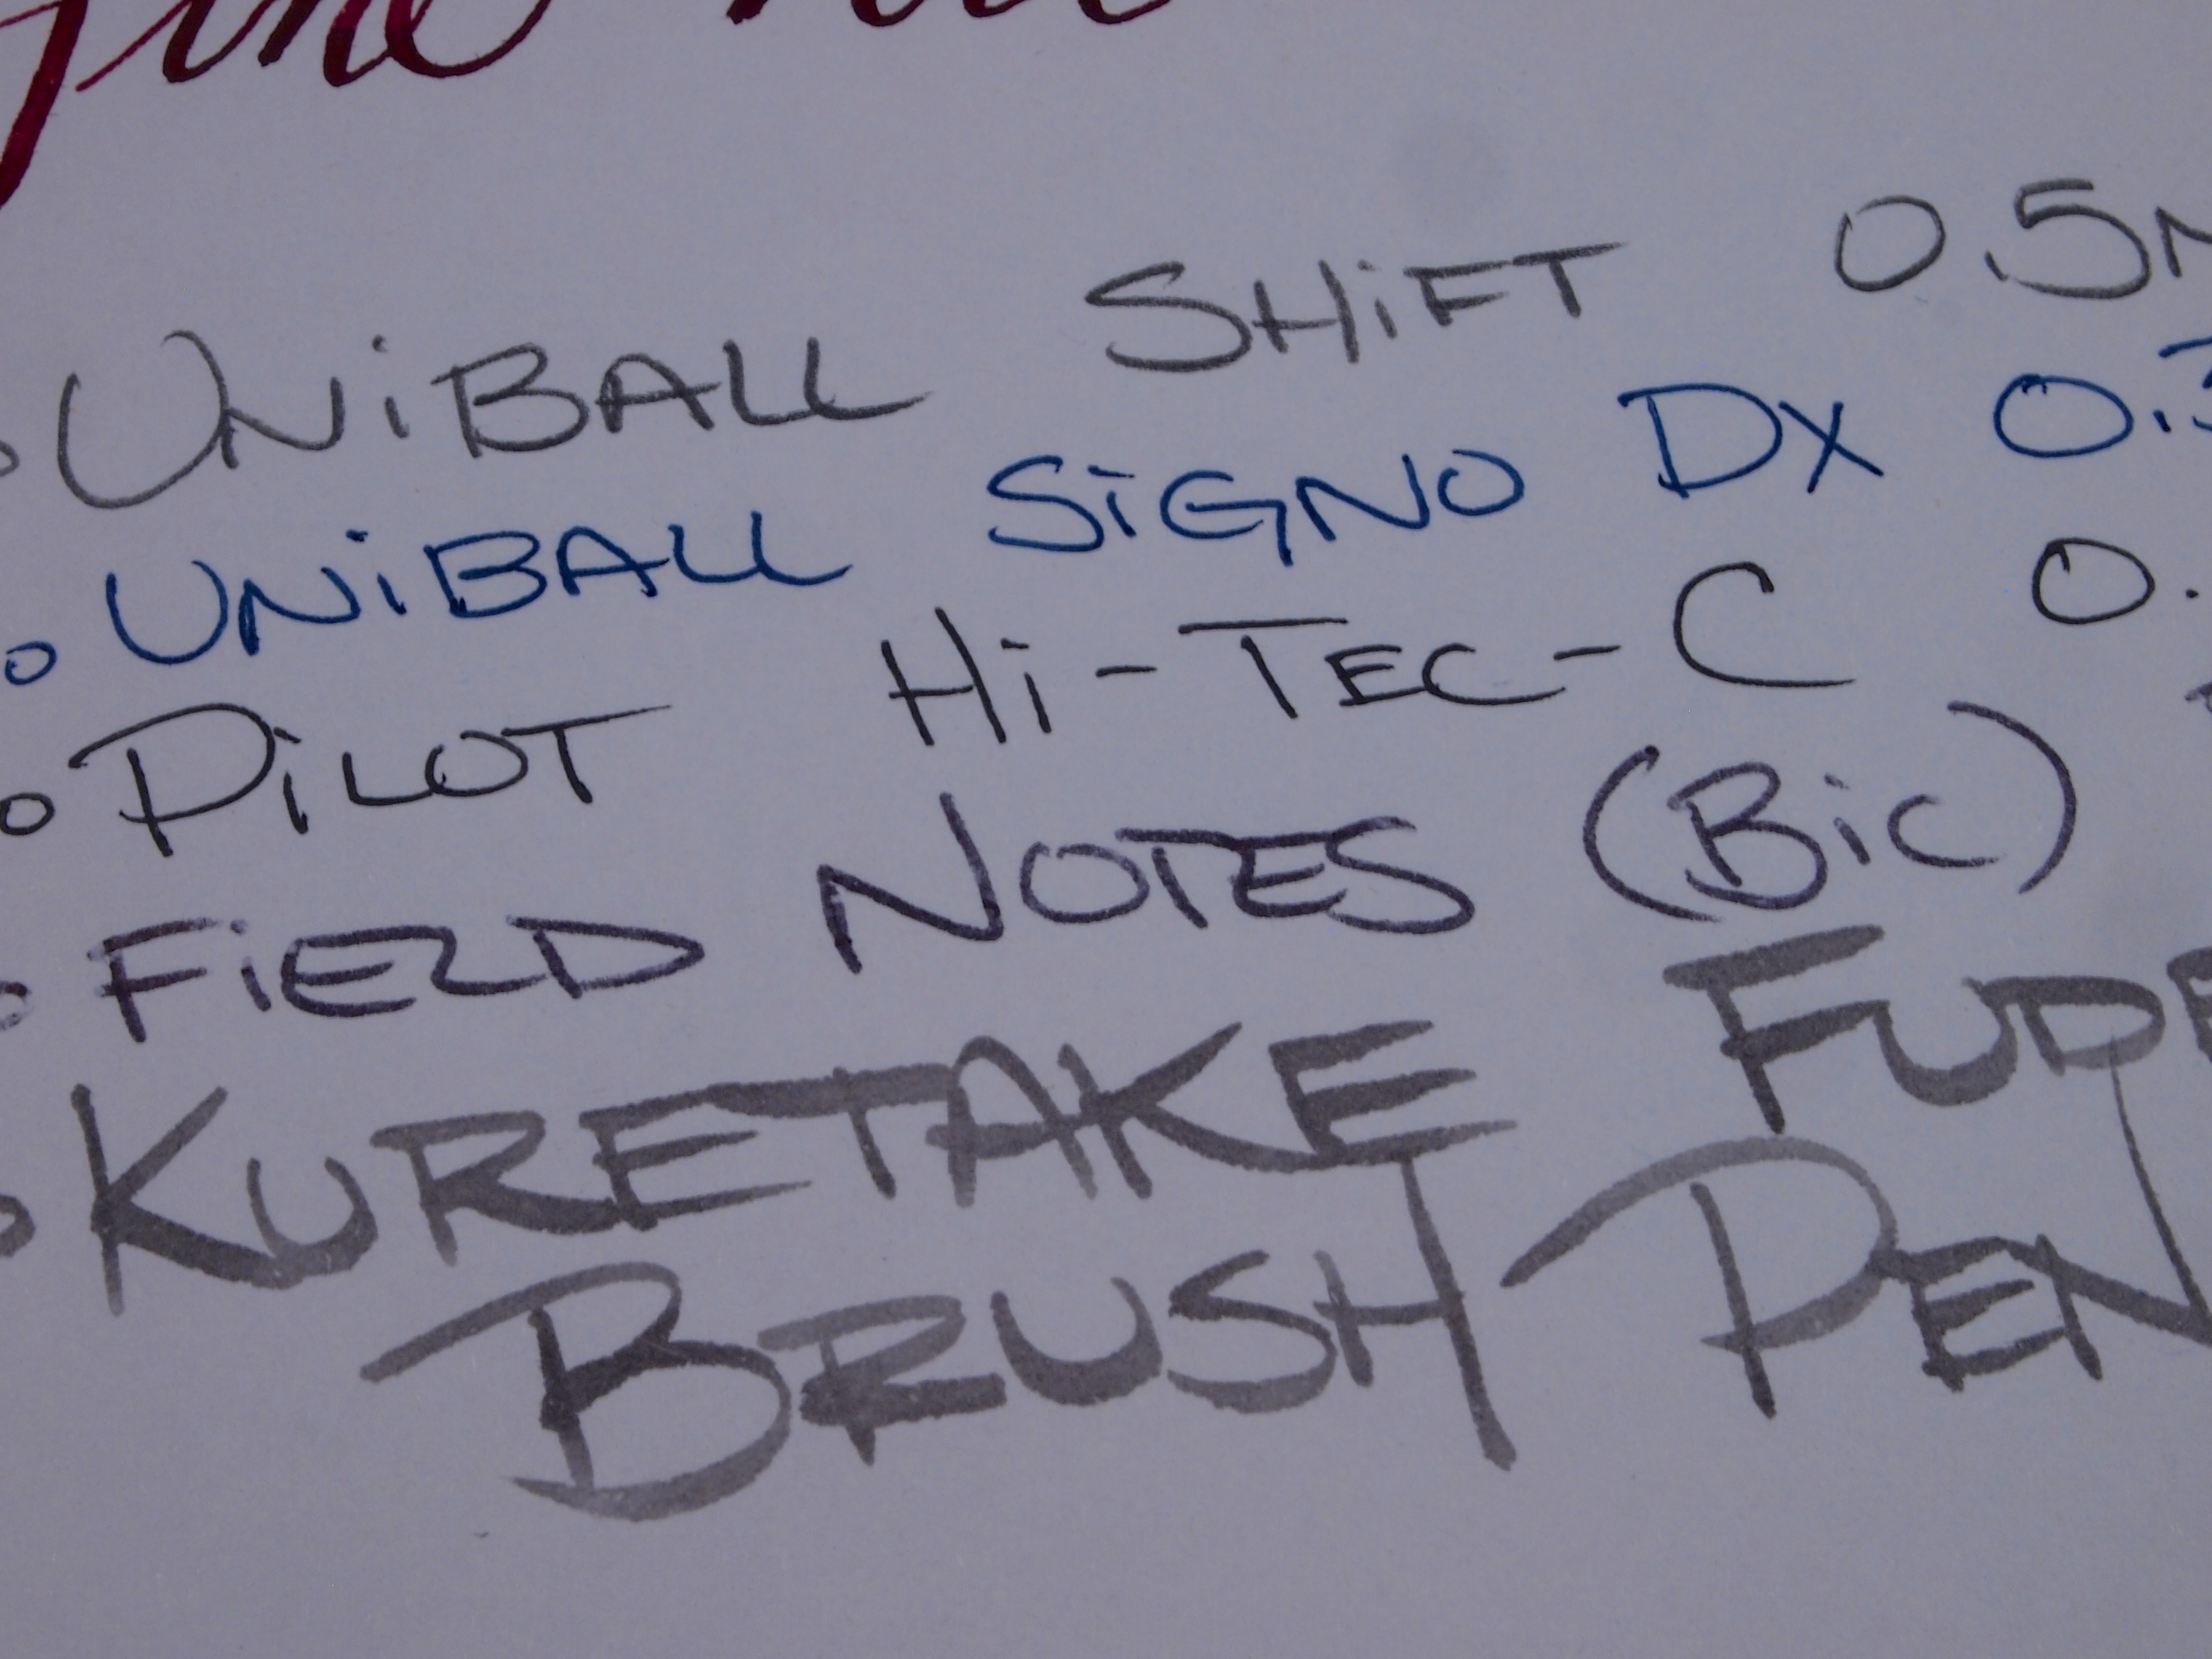 fine
UNiBALL SHiFT 0.5
UNiBALL SiGNO DX 0.
PiLOT Hi-TEC-C 0.
FiELD NOTES (BiC)
KURETAKE FUDE
BRUSH PEN